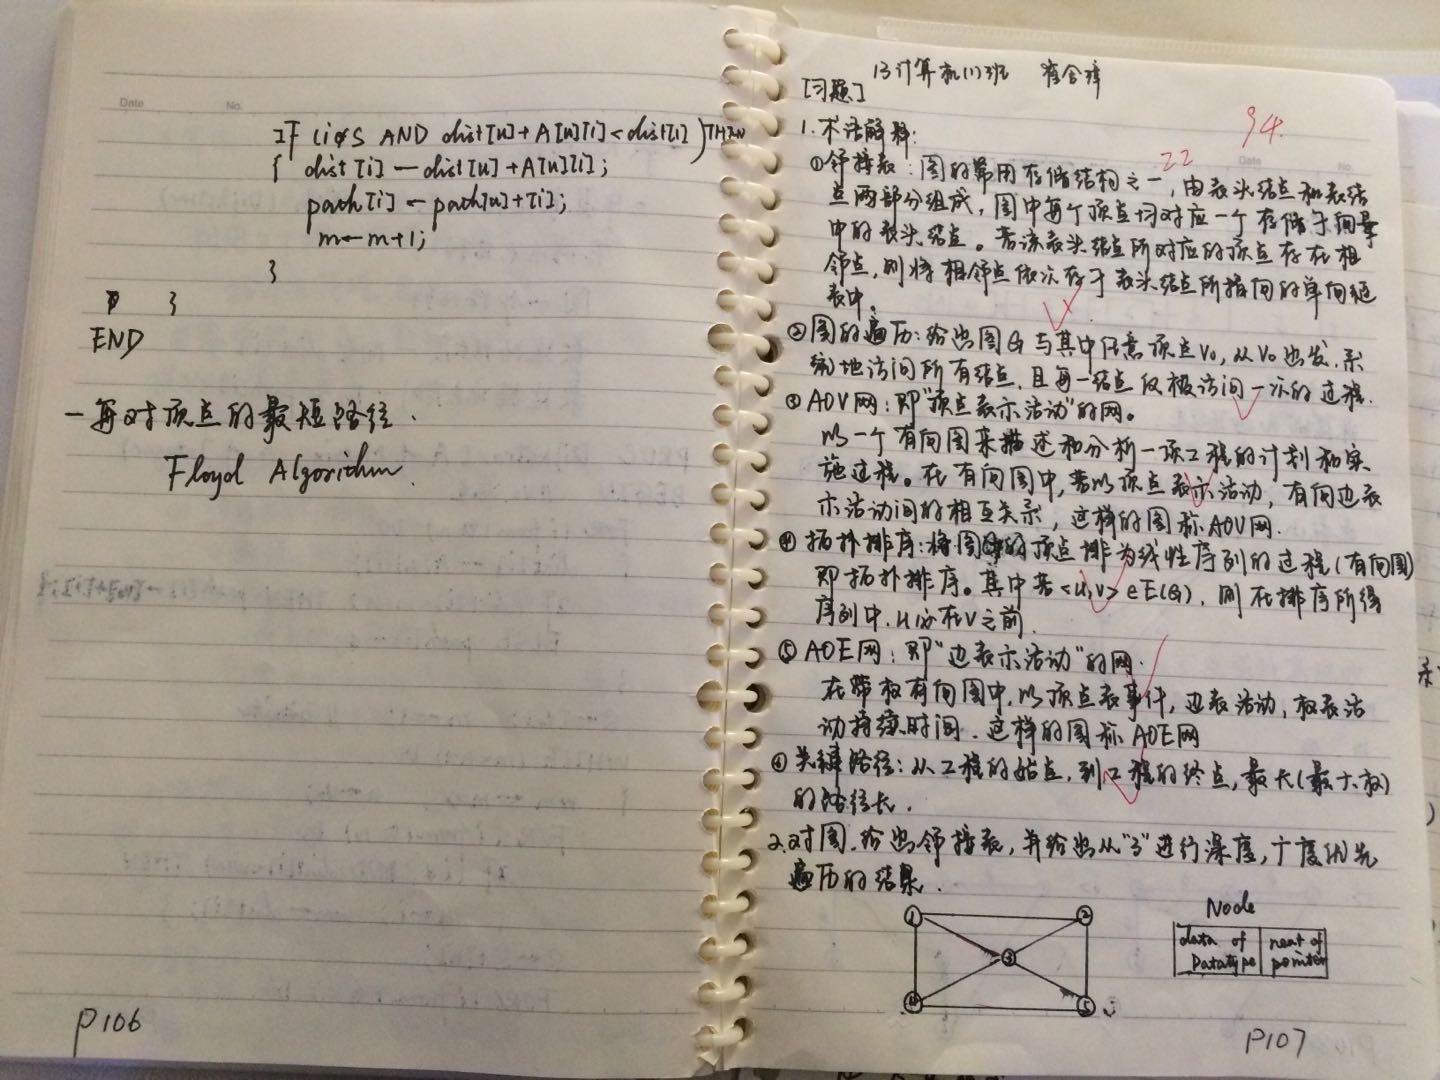 Date No.
IF (i∉S AND dist[u]+A[u][i]<dist[i]) THEN
{ dist[i]←dist[u]+A[u][i];
path[i]←path[u]+[i];
m←m+1;
}
}
END
一每对顶点的最短路径.
Floyd Algorithm.
P106
13计算机(1)班
[习题]
94.
22
Date No.
1.术语解释:
①邻接表:图的常用存储结构之一,由表头结点和表结
点两部分组成,图中每个顶点均对应一个存储于向量
中的表头结点。若该表头结点所对应的顶点存在相
邻点,则将相邻点依次存于表头结点所指向的单向链
表中。
②图的遍历:给出图G与其中任意顶点V0,从V0出发,系
统地访问所有结点,且每一结点仅被访问一次的过程.
③AOV网:即"顶点表示活动"的网。
以一个有向图来描述和分析一项工程的计划和实
施过程。在有向图中,若以顶点表示活动,有向边表
示活动间的相互关系,这样的图称AOV网.
④拓扑排序:将图中的顶点排为线性序列的过程(有向图)
即拓扑排序。其中若<u,v>∈E(G),则在排序所得
序列中,u必在v之前.
⑤AOE网:即"边表示活动"的网.
在带权有向图中,以顶点表事件,边表活动,权表活
动持续时间.这样的图称AOE网
⑥关键路径:从工程的始点,到工程的终点,最长(最大权)
的路径长.
2.对图,给出邻接表,并给出从"3"进行深度,广度优先
遍历的结果.
① ② Node
③ data of Datatype next of pointer
④ ⑤
P107